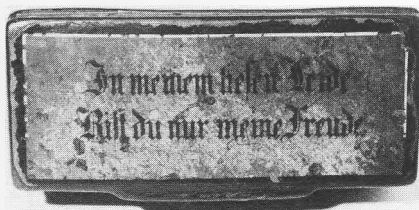 In meinem tiefen Leide
Bist du nur meine Freude